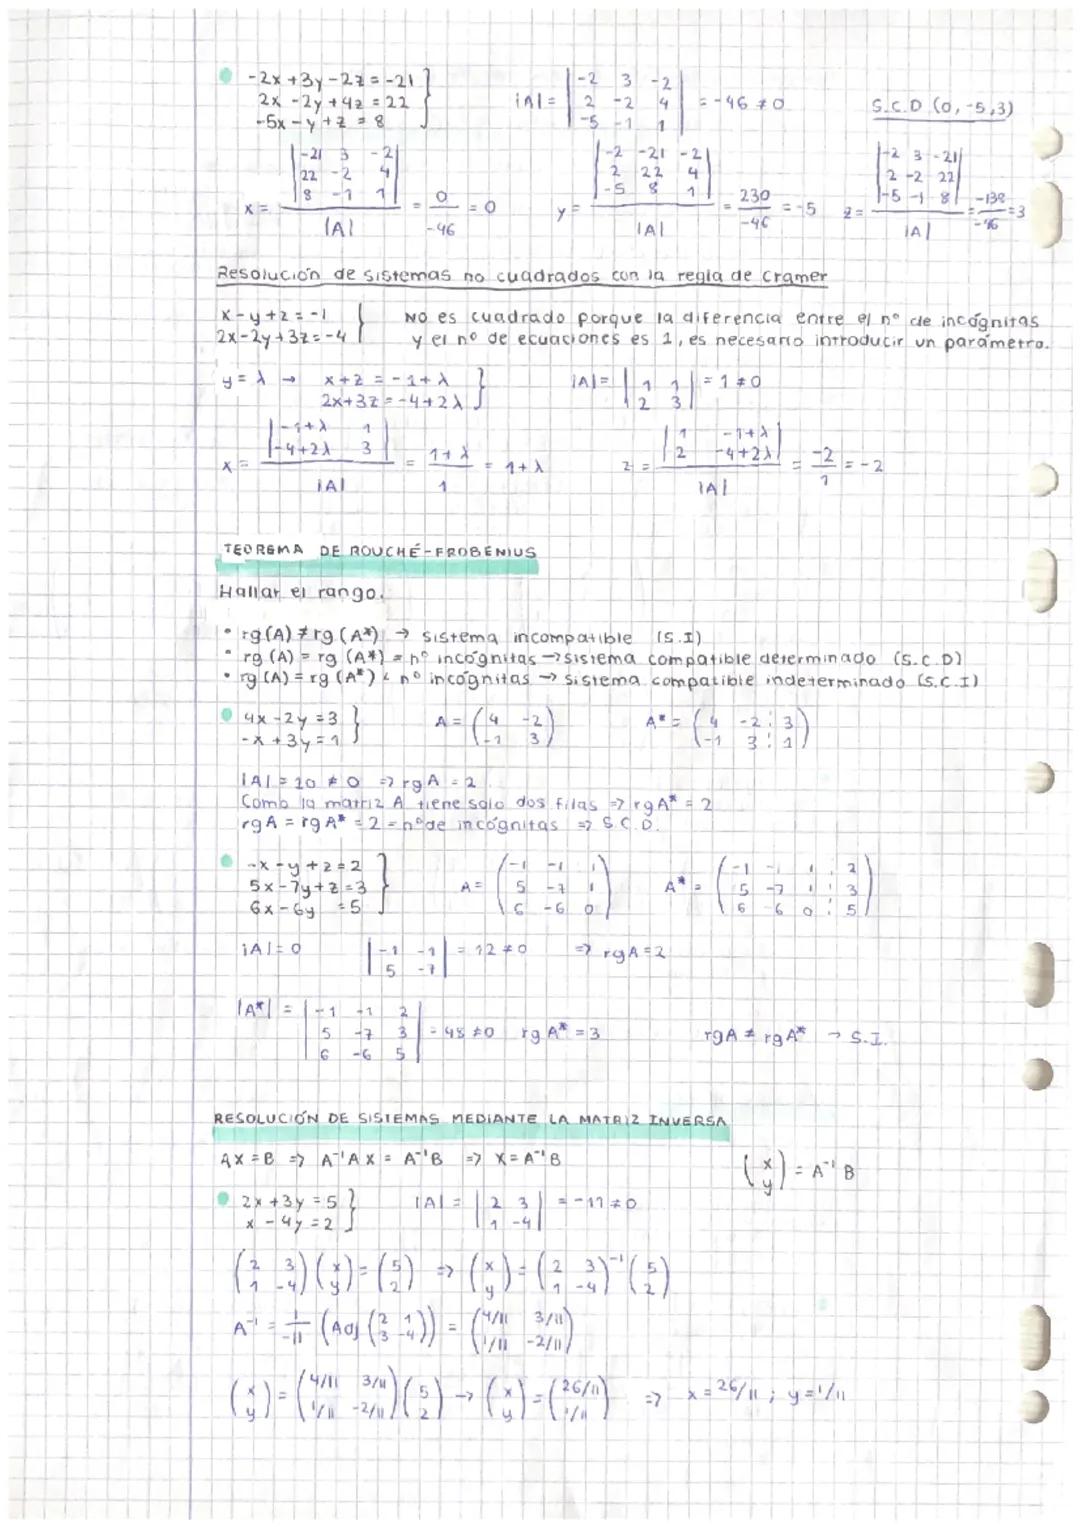 -2x +3y -2z = -21
2x -2y +4z = 22
-5x - y + z = 8
|A| = | -2 3 -2 | 2 -2 4 | -5 -1 1 | = -46 ≠ 0
S.C.D (0, -5, 3)
x = | -21 3 -2 | 22 -2 4 | 8 -1 1 | / |A| = 0 / -46 = 0
y = | -2 -21 -2 | 2 22 4 | -5 8 1 | / |A| = 230 / -46 = -5
z = | -2 3 -21 | 2 -2 22 | -5 -1 8 | / |A| = -138 / -46 = 3
Resolución de sistemas no cuadrados con la regla de Cramer
x - y + z = -1
2x - 2y + 3z = -4
No es cuadrado porque la diferencia entre el nº de incógnitas
y el nº de ecuaciones es 1, es necesario introducir un parámetro.
y = λ → x + z = -1 + λ
2x + 3z = -4 + 2λ
|A| = | 1 1 | 2 3 | = 1 ≠ 0
x = | -1+λ 1 | -4+2λ 3 | / |A| = 1+λ / 1 = 1+λ
z = | 1 -1+λ | 2 -4+2λ | / |A| = -2 / 1 = -2
TEOREMA DE ROUCHÉ-FROBENIUS
Hallar el rango.
• rg (A) ≠ rg (A*) → sistema incompatible (S.I)
• rg (A) = rg (A*) = nº incógnitas → sistema compatible determinado (S.C.D)
• rg (A) = rg (A*) < nº incógnitas → sistema compatible indeterminado (S.C.I)
4x - 2y = 3
-x + 3y = 1
A = ( 4 -2 | -1 3 )
A* = ( 4 -2 ⋮ 3 | -1 3 ⋮ 1 )
|A| = 10 ≠ 0 => rg A = 2
Como la matriz A tiene solo dos filas => rg A* = 2
rg A = rg A* = 2 = nº de incógnitas => S.C.D.
-x - y + z = 2
5x - 7y + z = 3
6x - 6y = 5
A = ( -1 -1 1 | 5 -7 1 | 6 -6 0 )
A* = ( -1 -1 1 ⋮ 2 | 5 -7 1 ⋮ 3 | 6 -6 0 ⋮ 5 )
|A| = 0 | -1 -1 | 5 -7 | = 12 ≠ 0 => rg A = 2
|A*| = | -1 -1 2 | 5 -7 3 | 6 -6 5 | = 48 ≠ 0 rg A* = 3 rg A ≠ rg A* → S.I.
RESOLUCIÓN DE SISTEMAS MEDIANTE LA MATRIZ INVERSA
AX = B => A⁻¹AX = A⁻¹B => X = A⁻¹B
( x | y ) = A⁻¹ B
2x + 3y = 5
x - 4y = 2
|A| = | 2 3 | 1 -4 | = -11 ≠ 0
( 2 3 | 1 -4 ) ( x | y ) = ( 5 | 2 ) => ( x | y ) = ( 2 3 | 1 -4 )⁻¹ ( 5 | 2 )
A⁻¹ = 1 / -11 ( Adj ( 2 1 | 3 -4 ) ) = ( 4/11 3/11 | 1/11 -2/11 )
( x | y ) = ( 4/11 3/11 | 1/11 -2/11 ) ( 5 | 2 ) → ( x | y ) = ( 26/11 | 1/11 ) => x = 26/11 ; y = 1/11